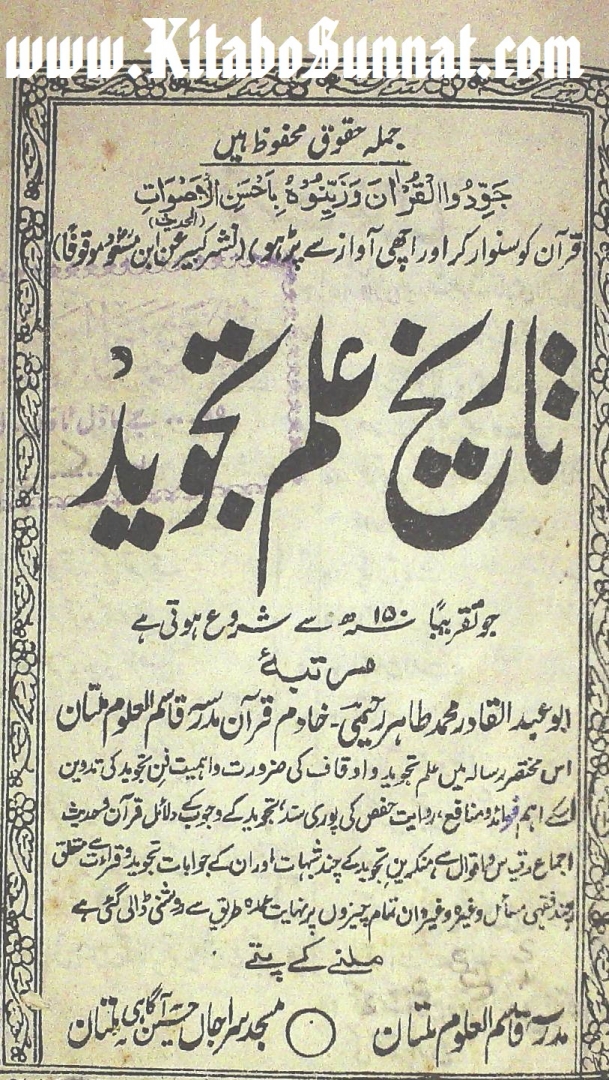 www.KitaboSunnat.com
جملہ حقوق محفوظ ہیں
جَوِّدُوا الْقُرْاٰنَ وَزَيِّنُوْهُ بِاَحْسَنِ الْاَصْوَاتِ
(الحدیث)
قرآن کو سنوار کر اور اچھی آواز سے پڑہو) (نشر کبیر عن ابن مسعودؓ موقوفًا)
تاریخ علم تجوید
جو تقریبًا ۱۵۰ھ سے شروع ہوتی ہے
مرتبہٗ
ابو عبد القادر محمد طاہر رحیمی۔ خادم قرآن مدرسہ قاسم العلوم ملتان
اس مختصر رسالہ میں علم تجوید و اوقاف کی ضرورت و اہمیت فن تجوید کی تدوین
اسکے اہم فوائد و منافع، روایت حفص کی پوری سند، تجوید کے وجوب کے دلائل قرآن و حدیث
اجماع و قیاس و اقوال سے منکرین تجوید کے چند شبہات اور ان کے جوابات تجوید و قراءت سے متعلق
چند فقہی مسائل وغیرہ وغیرہ ان تمام چیزوں پر نہایت عمدہ طریق سے روشنی ڈالی گئی ہے
ملنے کے پتے
مدرسہ قاسم العلوم ملتان مسجد سراجاں حسین آگاہی ملتان